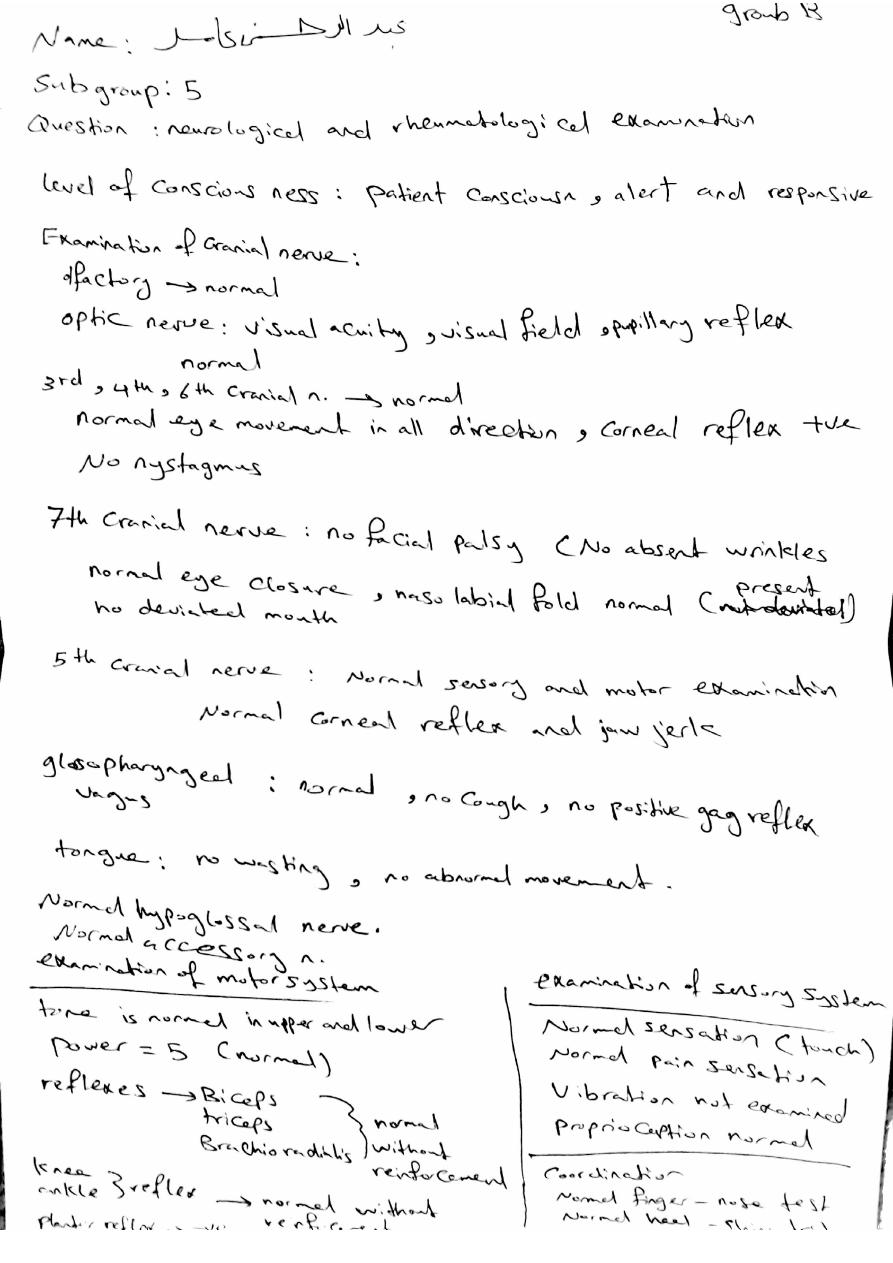 group B
Name : عبد الرحمن كامل
Subgroup: 5
Question : neurological and rheumatological examination
level of Conscious ness : patient Consciousn , alert and responsive
Examination of Cranial nerve :
olfactory → normal
optic nerve : visual acuity , visual field , pupillary reflex
normal
3rd , 4th , 6th Cranial n. → normal
normal eye movement in all direction , Corneal reflex +ve
No nystagmus
7th Cranial nerve : no facial palsy (No absent wrinkles
normal eye closure , naso labial fold normal (present)
no deviated mouth
5th Cranial nerve : Normal sensory and motor examination
Normal Corneal reflex and jaw jerk
glossopharyngeal : normal , no Cough , no positive gag reflex
vagus
tongue : no wasting , no abnormal movement .
Normal hypoglossal nerve .
Normal accessory n.
examination of motor system
tone is normal in upper and lower
power = 5 (normal)
reflexes → Biceps
triceps
Brachioradialis
normal
without
reinforcement
Knee
ankle } reflex → normal without
plantar reflex
examination of sensory system
Normal sensation (touch)
Normal pain sensation
Vibration not examined
proprioCaption normal
Coordination
Normal finger - nose test
Normal heel -